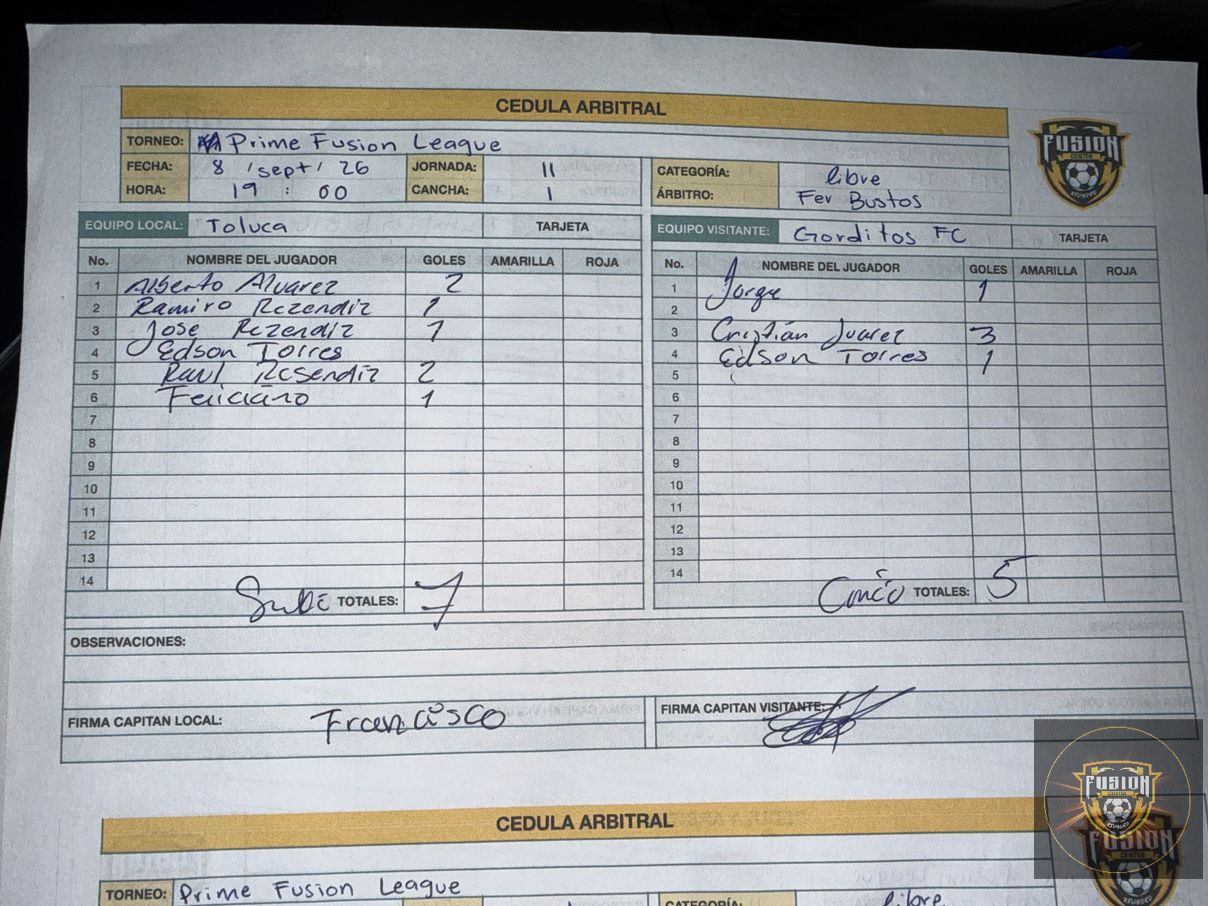 CEDULA ARBITRAL
TORNEO: Prime Fusion League
FECHA: 8 / sept / 26 JORNADA: 11
HORA: 19 : 00 CANCHA: 1
CATEGORÍA: libre
ÁRBITRO: Fer Bustos
FUSION
CENTER
EQUIPO LOCAL: Toluca TARJETA
No. NOMBRE DEL JUGADOR GOLES AMARILLA ROJA
1 Alberto Alvarez 2
2 Ramiro Rezendiz 1
3 Jose Rezendiz 1
4 Edson Torres
5 Raul Resendiz 2
6 Feliciano 1
7
8
9
10
11
12
13
14
TOTALES: 7
EQUIPO VISITANTE: Gorditos FC TARJETA
No. NOMBRE DEL JUGADOR GOLES AMARILLA ROJA
1 Jorge 1
2
3 Cristián Juarez 3
4 Edson Torres 1
5
6
7
8
9
10
11
12
13
14
TOTALES: 5
OBSERVACIONES:
FIRMA CAPITAN LOCAL: Francisco
FIRMA CAPITAN VISITANTE:
CEDULA ARBITRAL
TORNEO: Prime Fusion League
CATEGORÍA: libre
FUSION
CENTER
FUSION
CENTER